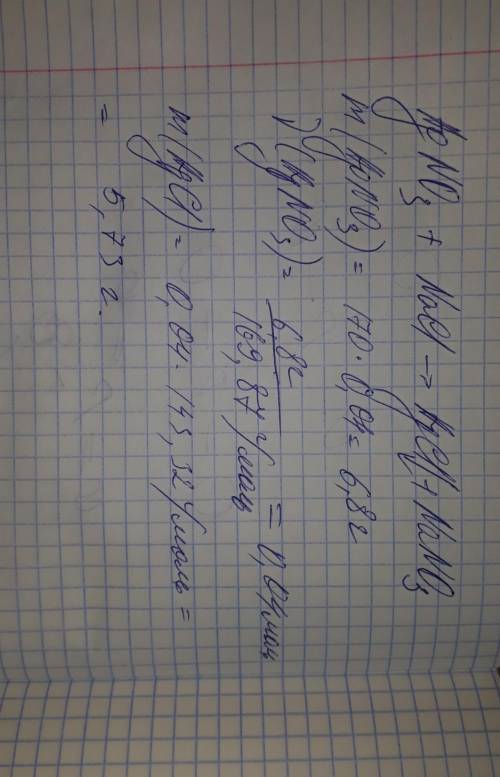 AgNO₃ + NaCl → AgCl↓ + NaNO₃
m(AgNO₃) = 170 · 0,04 = 6,8г
ν(AgNO₃) = 6,8г / 169,87 г/моль = 0,04 моль
m(AgCl) = 0,04 · 143,32 г/моль =
= 5,73 г.